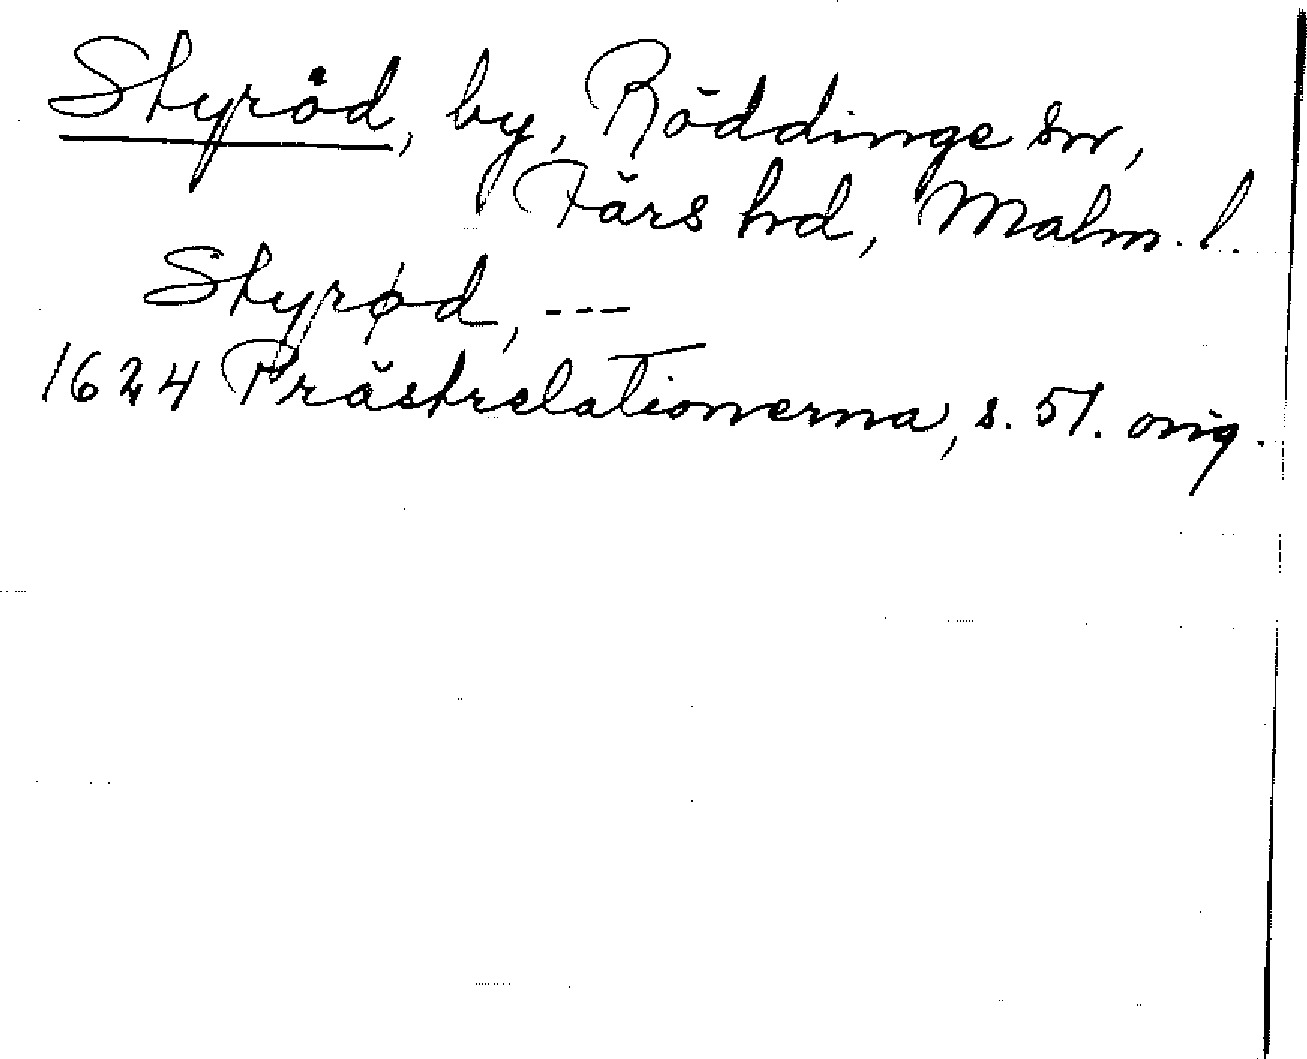 Styröd, by, Röddinge sn,
Färs hd, Malm. l.
Styrød, ---
1624 Prästrelationerna, s. 51. orig.